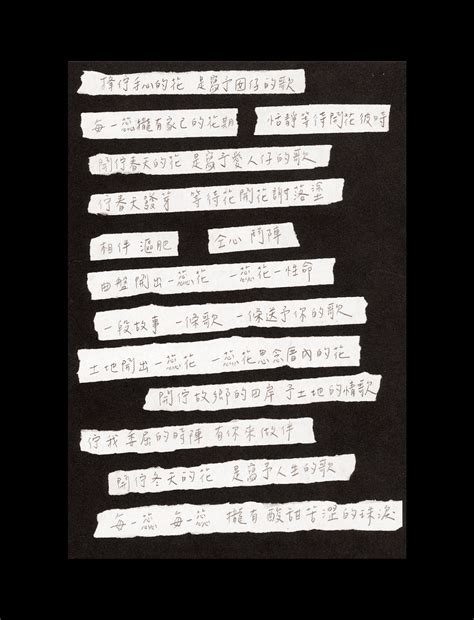 捧佇手心的花 是寫予囡仔的歌
每一蕊攏有家己的花期 恬靜等待開花彼時
開佇春天的花 是寫予愛人仔的歌
佇春天發芽 等待花開花謝落塗
相伴 漚肥 仝心 鬥陣
曲盤開出一蕊花 一蕊花一性命
一段故事 一條歌 一條送予你的歌
土地開出一蕊花 一蕊花思念厝內的花
開佇故鄉的田岸 予土地的情歌
佇我委屈的時陣 有你來做伴
開佇冬天的花 是寫予人生的歌
每一蕊 每一蕊 攏有酸甜苦澀的珠淚